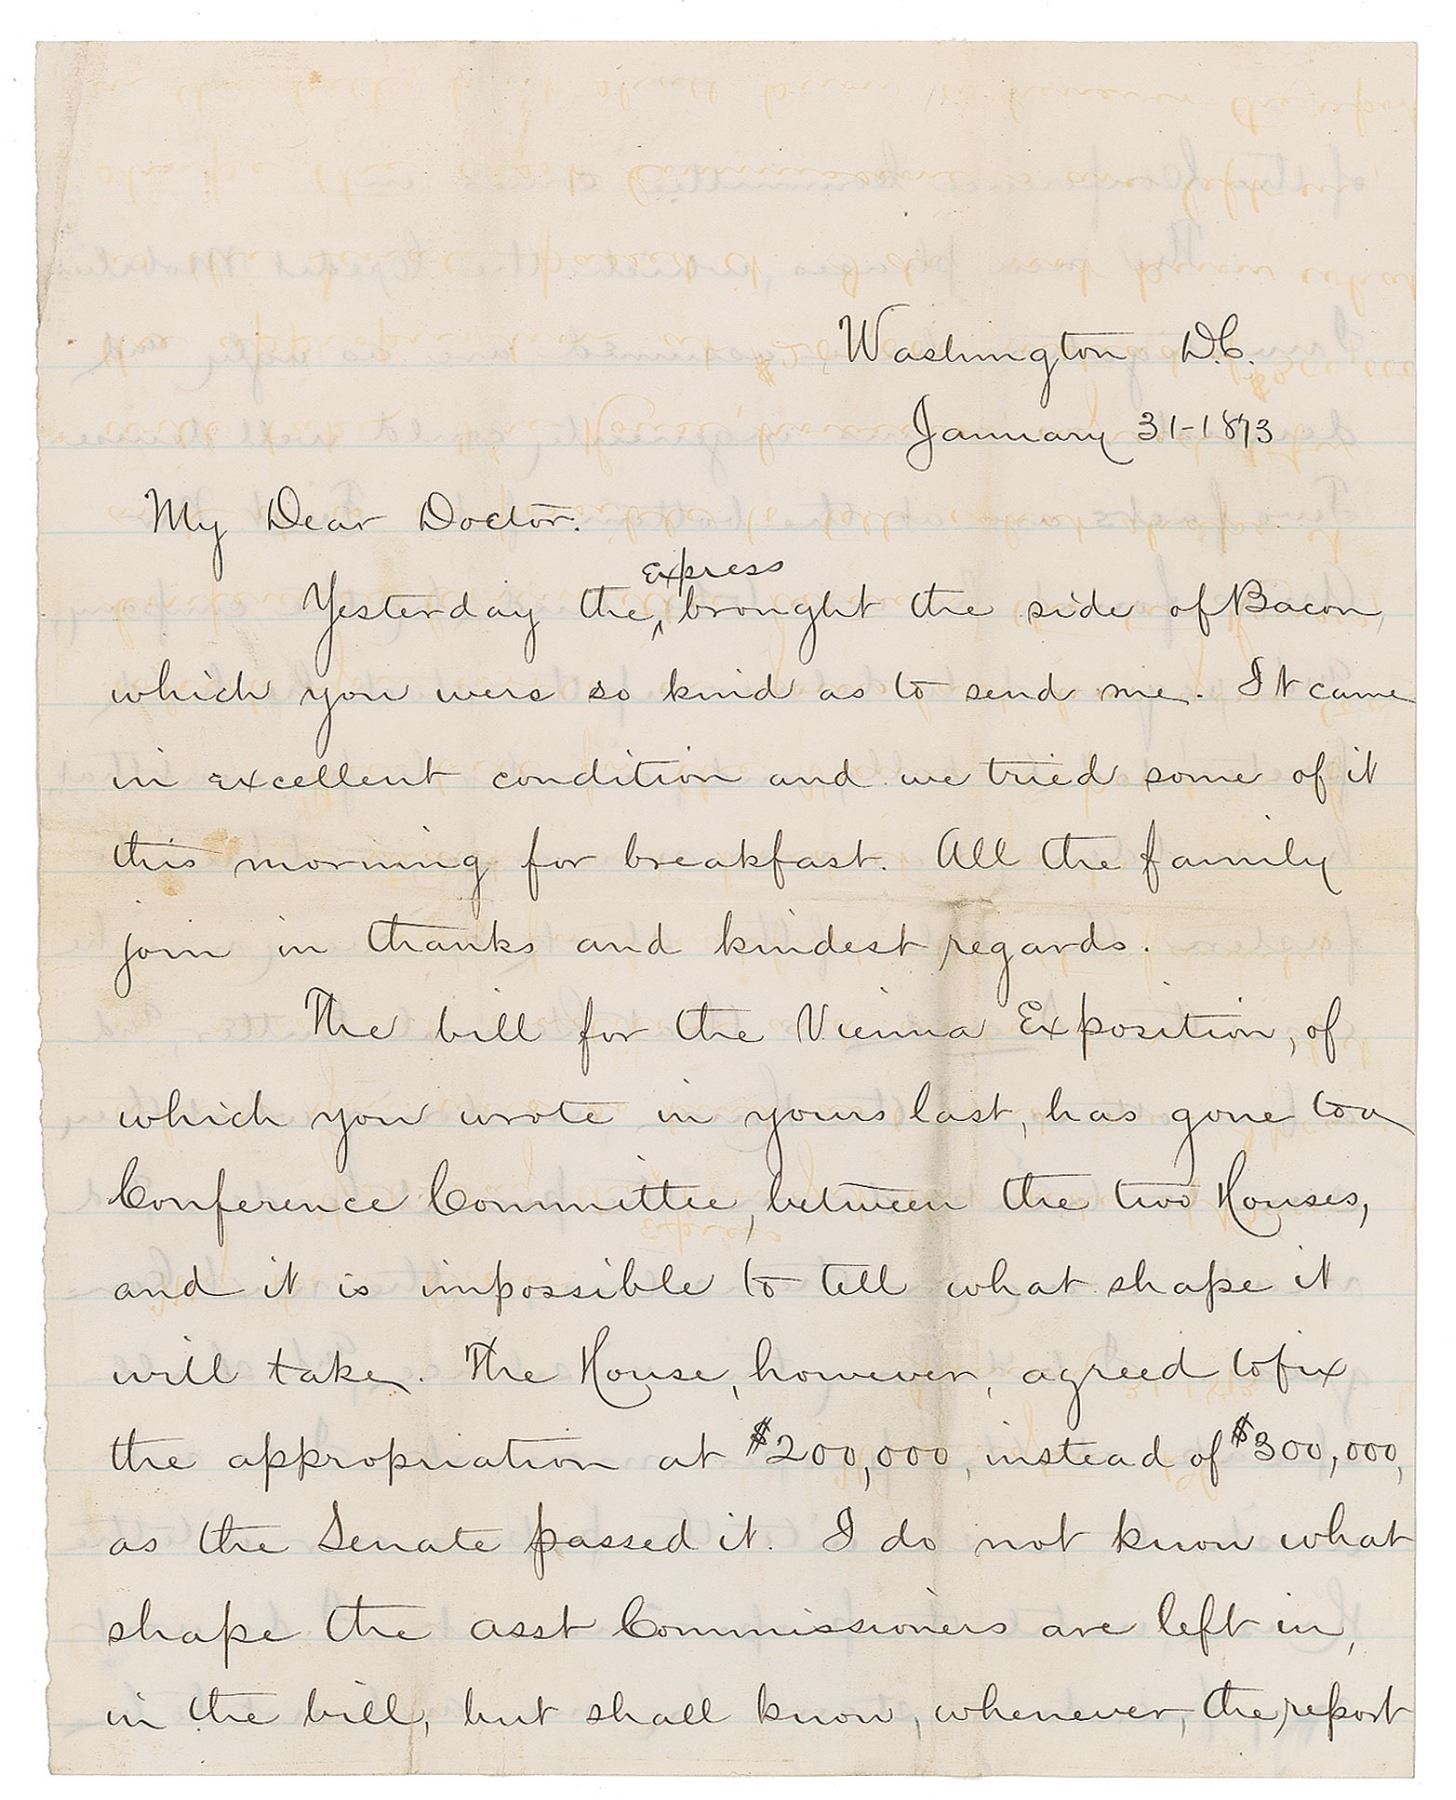 Washington D.C.
January 31-1873
My Dear Doctor.
express
Yesterday the ‸ brought the side of Bacon,
which you were so kind as to send me. It came
in excellent condition and we tried some of it
this morning for breakfast. All the family
join in thanks and kindest regards.
The bill for the Vienna Exposition, of
which you wrote in yours last, has gone to a
Conference Committee, between the two Houses,
and it is impossible to tell what shape it
will take. The House, however, agreed to fix
the appropriation at $200,000, instead of $300,000,
as the Senate passed it. I do not know what
shape the asst Commissioners are left in,
in the bill, but shall know, whenever, the report